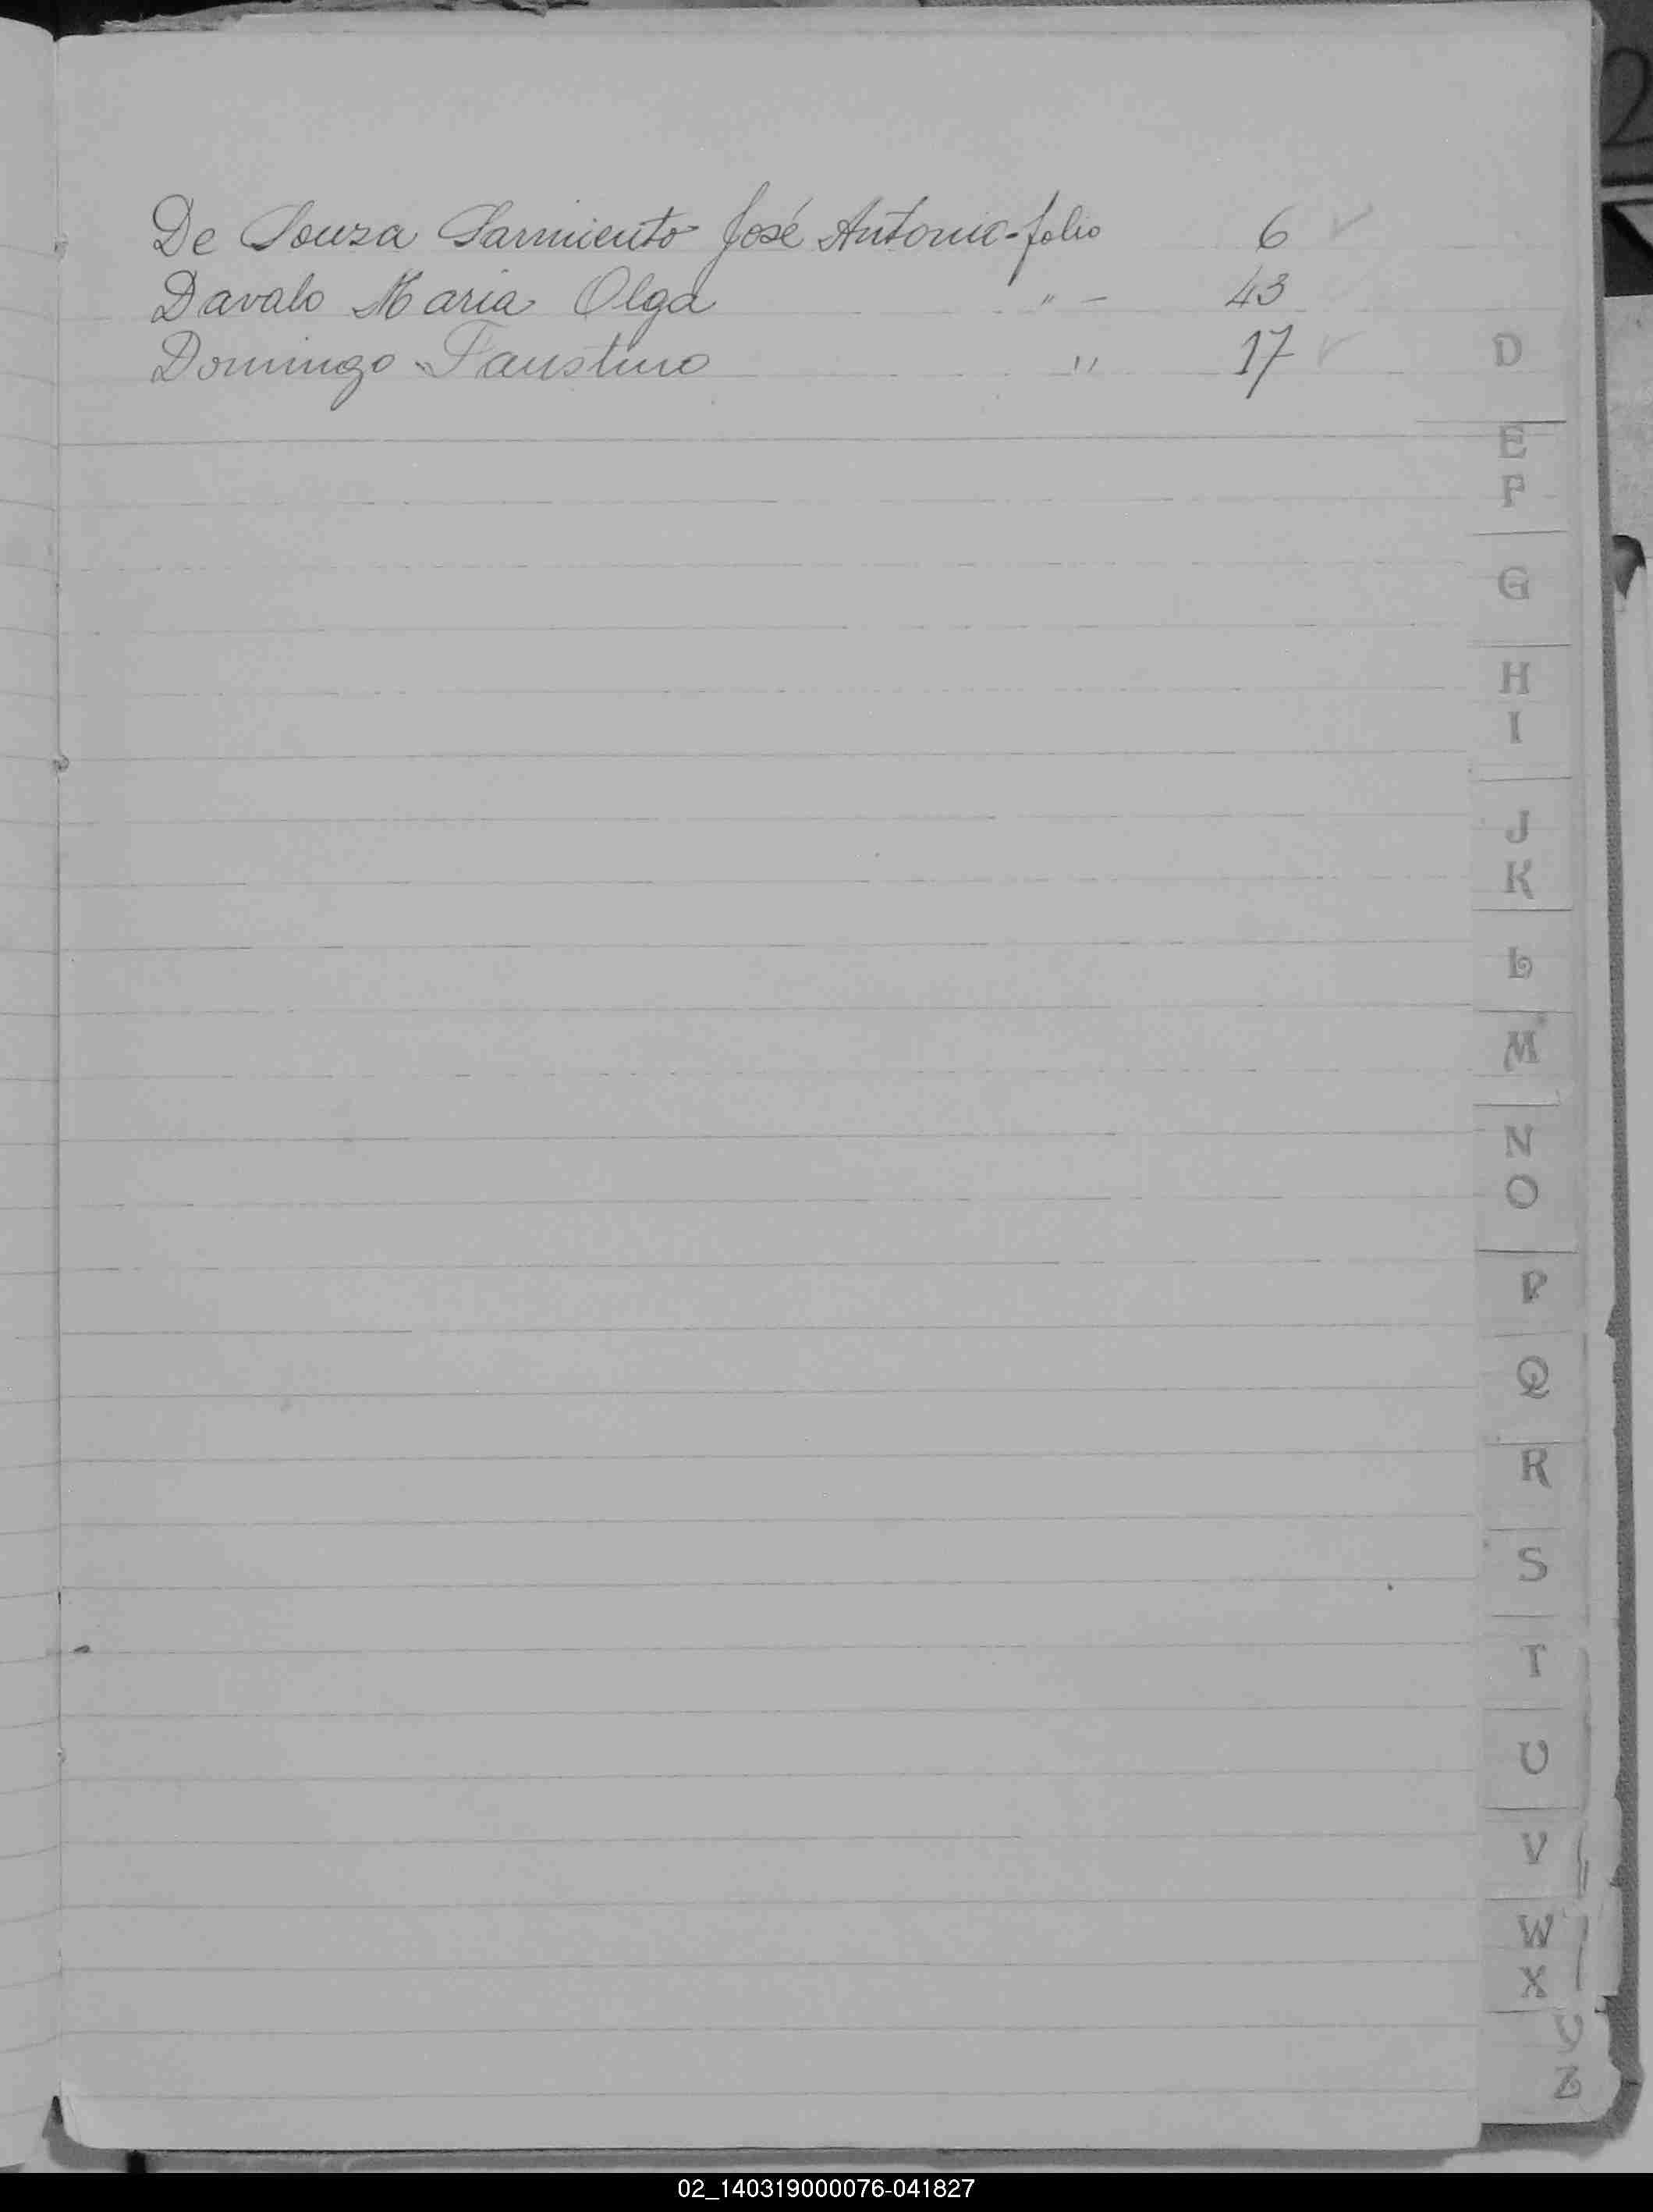 De Souza Sarmiento José Antonio - folio 6 ✓
Davalo Maria Olga " - 43
Domingo Faustino " 17 ✓
D
E
F
G
H
I
J
K
L
M
N
O
P
Q
R
S
T
U
V
W
X
Z
02_140319000076-041827